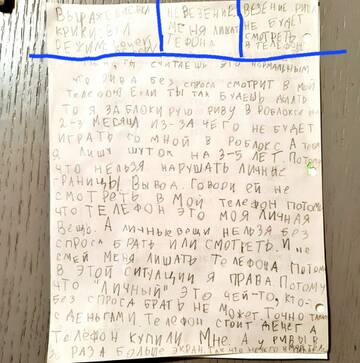 ВЫРАЖЕ
НЕВЕЗЕНИЕ
ВЕЗЕНИЕ РИВЫ
КРИКЕ
МЕНЯ ЛИШАТ
НЕ БУДЕТ
РЕЖИМ
ТЕЛЕФОНА
СМОТРЕТЬ
В ТЕЛЕФОН
ТЫ СЧИТАЕШЬ ЭТО НОРМАЛЬНЫМ
ЧТО РИВА БЕЗ СПРОСА СМОТРИТ В МОЙ
ТЕЛЕФОН? ЕСЛИ ТЫ ТАК БУДЕШЬ ДЕЛАТЬ
ТО Я ЗАБЛОКИРУЮ РИВУ В РОБЛОКСЕ НА
2-3 МЕСЯЦА ИЗ-ЗА ЧЕГО НЕ БУДЕТ
ИГРАТЬ СО МНОЙ В РОБЛОКС. А ТЕБЯ
Я ЛИШУ ШУТОК НА 3-5 ЛЕТ. ПОТОМУ
ЧТО НЕЛЬЗЯ НАРУШАТЬ ЛИЧНЫЕ
ГРАНИЦЫ. ВЫВОД. ГОВОРИ ЕЙ НЕ
СМОТРЕТЬ В МОЙ ТЕЛЕФОН ПОТОМУ
ЧТО ТЕЛЕФОН ЭТО МОЯ ЛИЧНАЯ
ВЕЩЬ. А ЛИЧНЫЕ ВЕЩИ НЕЛЬЗЯ БЕЗ
СПРОСА БРАТЬ ИЛИ СМОТРЕТЬ. И НЕ
СМЕЙ МЕНЯ ЛИШАТЬ ТЕЛЕФОНА ПОТОМУ
В ЭТОЙ СИТУАЦИИ Я ПРАВА. ПОТОМУ
ЧТО "ЛИЧНЫЙ" ЭТО ЧЕЙ-ТО, КТО-
БЕЗ СПРОСА БРАТЬ НЕ МОЖЕТ. ТОЧНО ТАКЖЕ
С ДЕНЬГАМИ. ТЕЛЕФОН СТОИТ ДЕНЕГ А
ТЕЛЕФОН КУПИЛИ МНЕ. А У РИВЫ В
РАЗА БОЛЬШЕ ЭКРАН. ТАК ЧТО